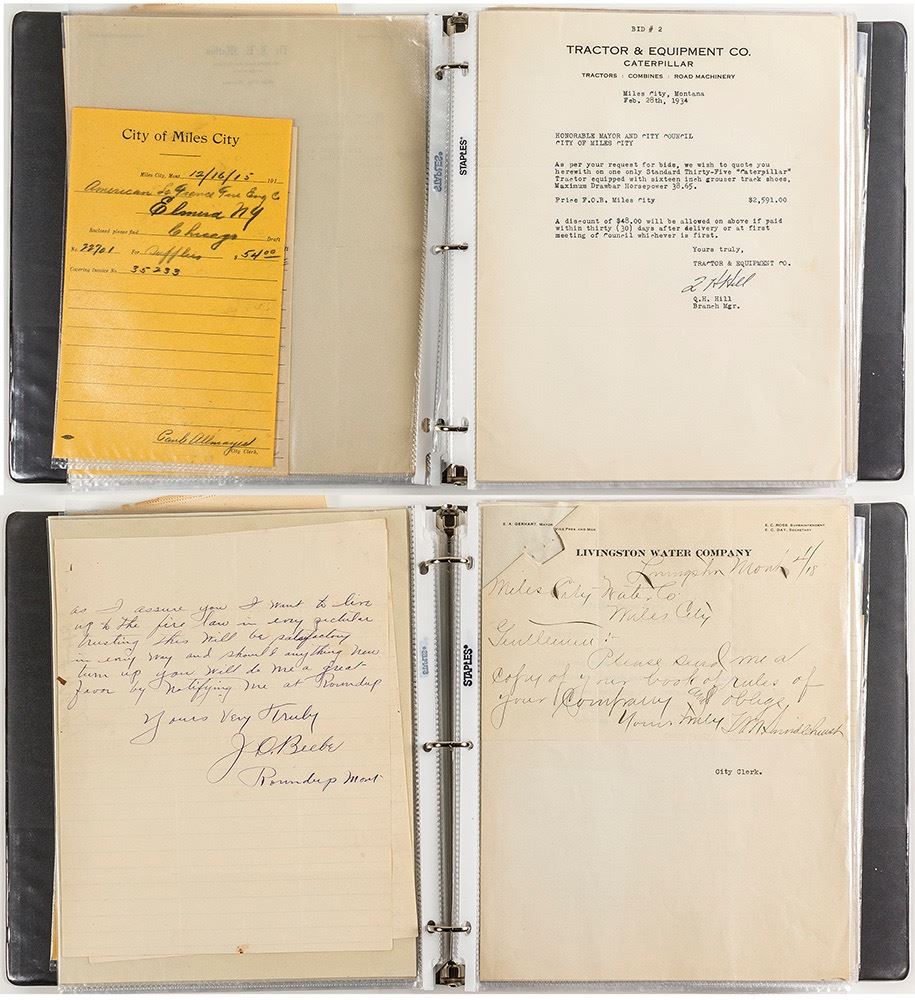 City of Miles City
Miles City, Mont. 12/16/15 191
American La France Fire Eng C
Elmira NY
Enclosed please find Chicago Draft
No. 22701 For Supplies $ 54.00
Covering Invoice No. 35233
City Clerk.
STAPLES®
BID # 2
TRACTOR & EQUIPMENT CO.
CATERPILLAR
TRACTORS : COMBINES : ROAD MACHINERY
Miles City, Montana
Feb. 28th, 1934
HONORABLE MAYOR AND CITY COUNCIL
CITY OF MILES CITY
As per your request for bids, we wish to quote you
herewith on one only Standard Thirty-Five "Caterpillar"
Tractor equipped with sixteen inch grouser track shoes,
Maximum Drawbar Horsepower 38.65.
Price F.O.B. Miles City $2,591.00
A discount of $48.00 will be allowed on above if paid
within thirty (30) days after delivery or at first
meeting of Council whichever is first.
Yours truly,
TRACTOR & EQUIPMENT CO.
Q H Hill
Q.H. Hill
Branch Mgr.
as I assure you I want to live
up to the fire law in evry peticular
trusting this will be satisfactory
in evry way and should anything new
turn up you will do me a great
favor by notifying me at Roundup
Yours Very Truly
J. O. Beebe
Roundup Mont
STAPLES®
E. A. GERHART, MAYOR
VICE PRES AND MGR
E. C. ROSS SUPERINTENDENT
E. C. DAY, SECRETARY
LIVINGSTON WATER COMPANY
Livingston Mont
Miles City Water Co.
Miles City
Gentlemen :-
Please send me a
copy of your book of rules of
your Company & oblige
Yours truly
City Clerk.